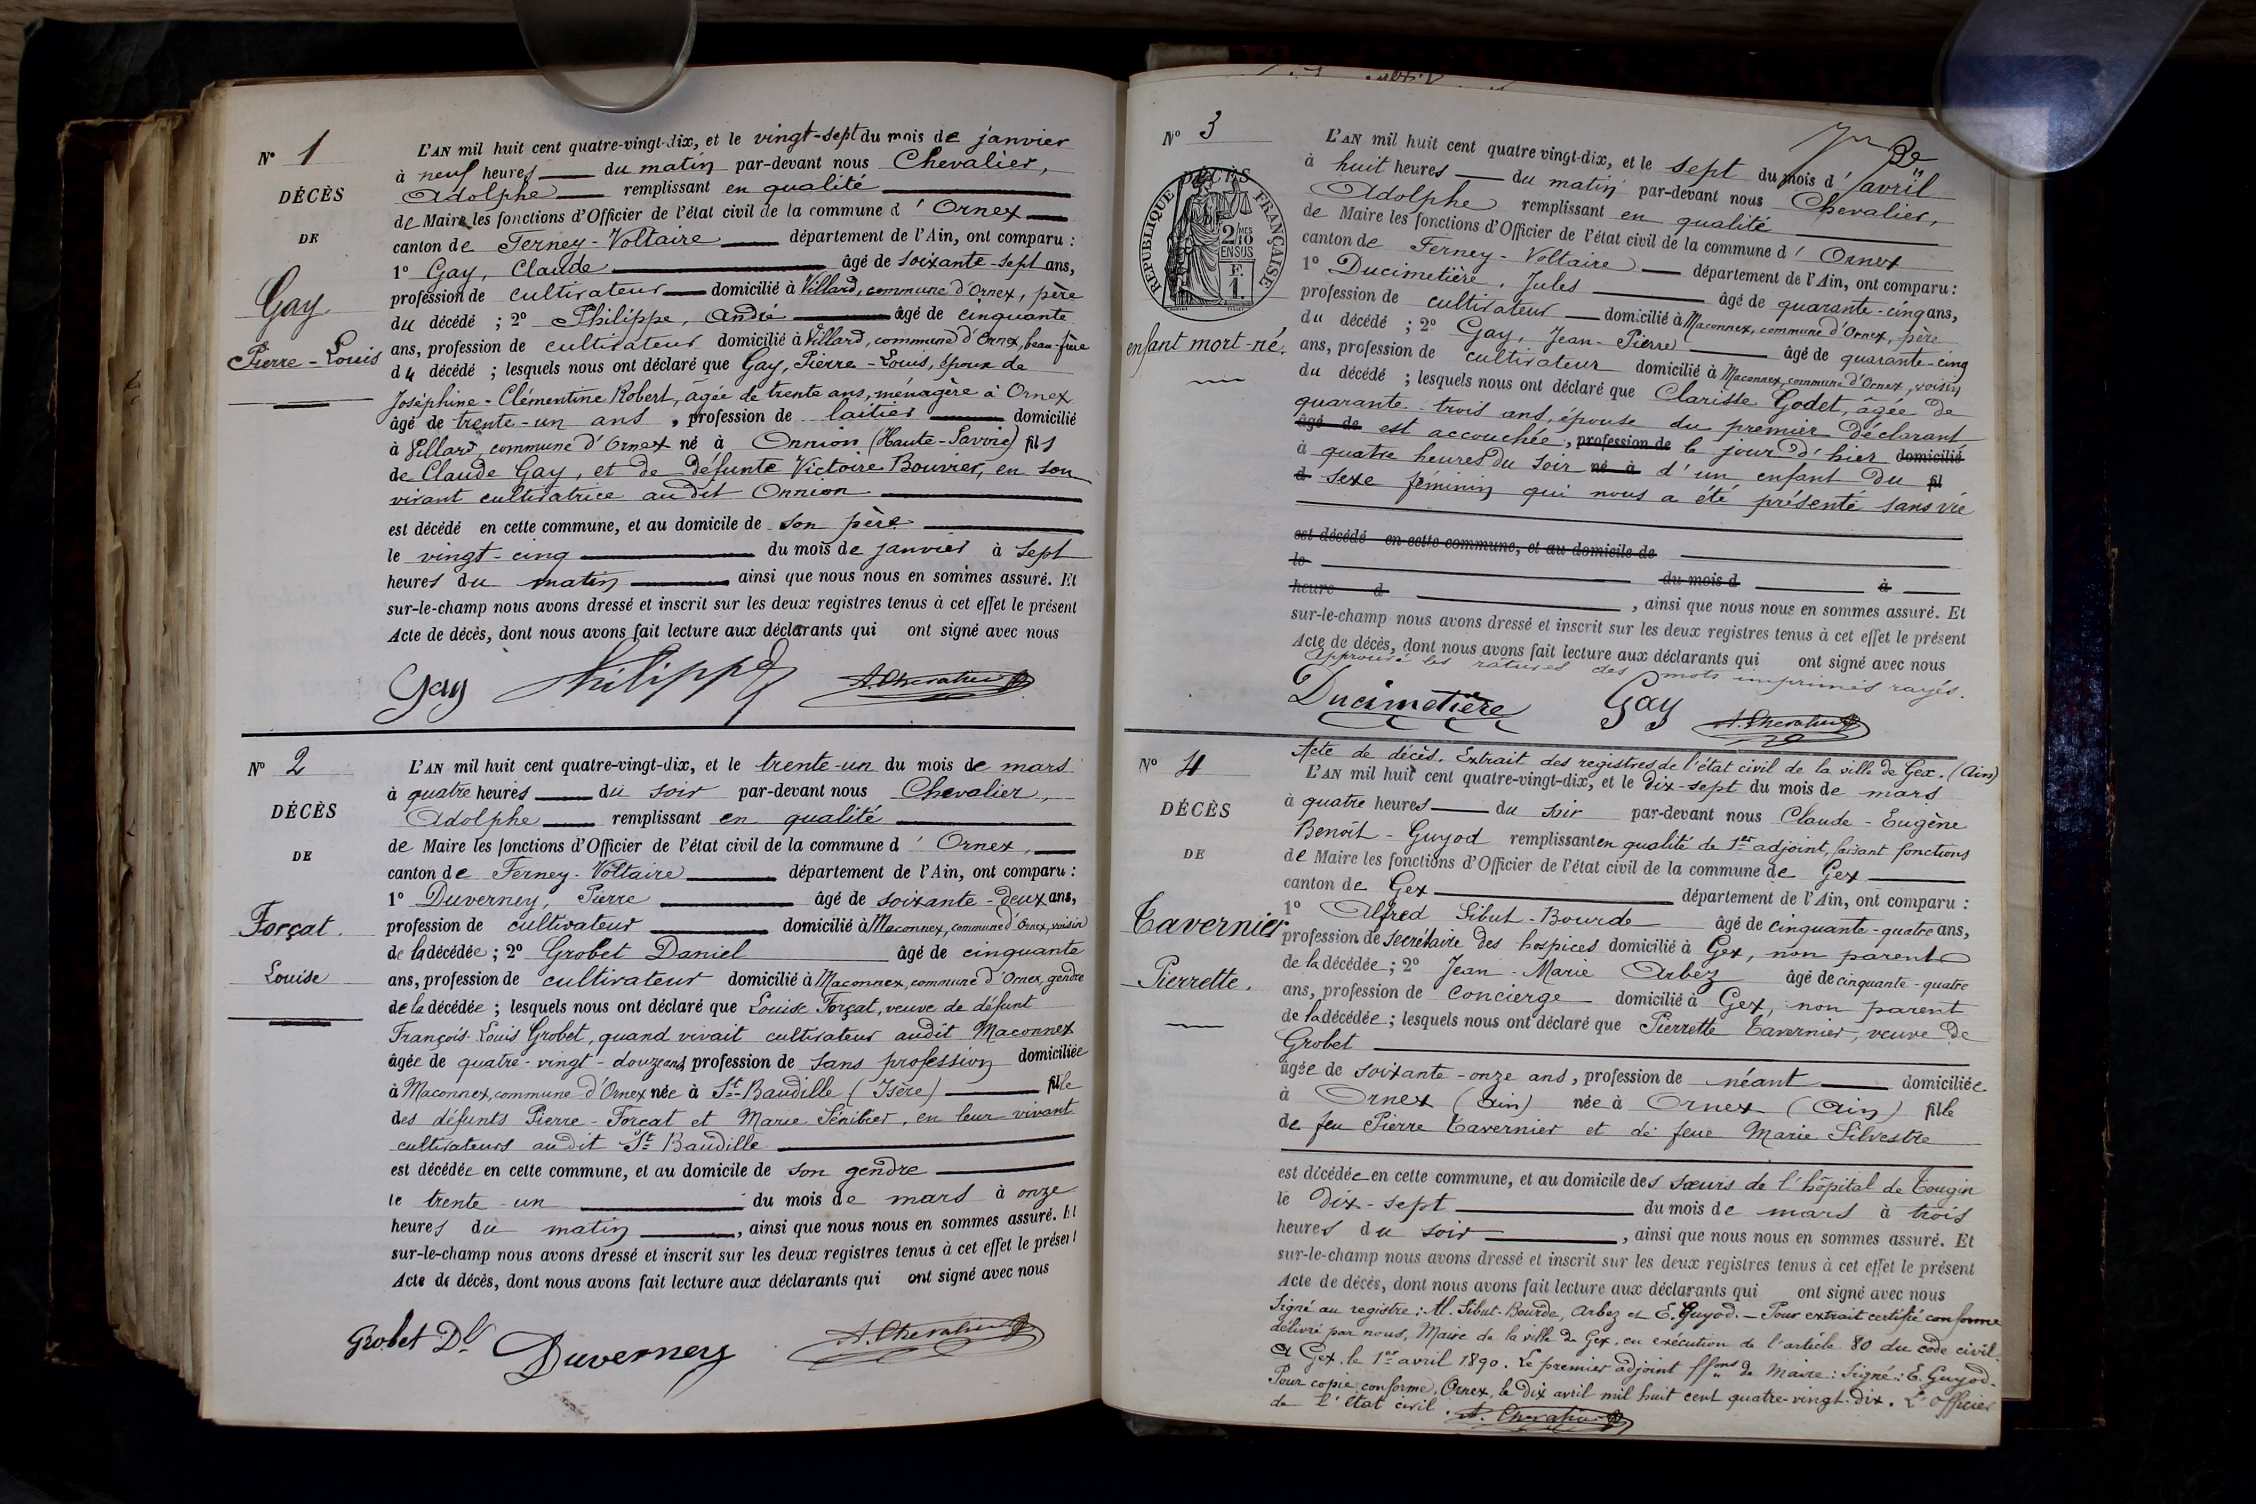 N° 1
DÉCÈS
DE
Gay
Pierre-Louis
L'AN mil huit cent quatre-vingt-dix, et le vingt-sept du mois de janvier
à neuf heures du matin par-devant nous Chevalier,
Adolphe remplissant en qualité
de Maire les fonctions d'Officier de l'état civil de la commune d'Ornex
canton de Ferney-Voltaire département de l'Ain, ont comparu :
1° Gay, Claude âgé de soixante-sept ans,
profession de cultivateur domicilié à Villard, commune d'Ornex, père
du décédé ; 2° Philippe, André âgé de cinquante
ans, profession de cultivateur domicilié à Villard, commune d'Ornex, beau-frère
du décédé ; lesquels nous ont déclaré que Gay, Pierre-Louis, époux de
Joséphine-Clémentine Robert, âgée de trente ans, ménagère à Ornex
âgé de trente-un ans, profession de laitier domicilié
à Villard, commune d'Ornex né à Onnion (Haute-Savoie) fils
de Claude Gay, et de défunte Victoire Bouvier, en son
vivant cultivatrice audit Onnion
est décédé en cette commune, et au domicile de son père
le vingt-cinq du mois de janvier à sept
heures du matin ainsi que nous nous en sommes assuré. Et
sur-le-champ nous avons dressé et inscrit sur les deux registres tenus à cet effet le présent
Acte de décès, dont nous avons fait lecture aux déclarants qui ont signé avec nous
Gay Philippe A. Chevalier
N° 2
DÉCÈS
DE
Forçat.
Louise
L'AN mil huit cent quatre-vingt-dix, et le trente-un du mois de mars
à quatre heures du soir par-devant nous Chevalier,
Adolphe remplissant en qualité
de Maire les fonctions d'Officier de l'état civil de la commune d'Ornex,
canton de Ferney-Voltaire département de l'Ain, ont comparu :
1° Duverney, Pierre âgé de soixante-deux ans,
profession de cultivateur domicilié à Maconnex, commune d'Ornex, voisin
de la décédée ; 2° Grobet Daniel âgé de cinquante
ans, profession de cultivateur domicilié à Maconnex, commune d'Ornex, gendre
de la décédée ; lesquels nous ont déclaré que Louise Forçat, veuve de défunt
François-Louis Grobet, quand vivait cultivateur audit Maconnex
âgée de quatre-vingt-douze ans, profession de sans profession domiciliée
à Maconnex, commune d'Ornex née à St-Baudille (Isère) fille
des défunts Pierre-Forçat et Marie Sénibier, en leur vivant
cultivateurs audit St-Baudille
est décédée en cette commune, et au domicile de son gendre
le trente-un du mois de mars à onze
heures du matin, ainsi que nous nous en sommes assuré. Et
sur-le-champ nous avons dressé et inscrit sur les deux registres tenus à cet effet le présent
Acte de décès, dont nous avons fait lecture aux déclarants qui ont signé avec nous
Grobet Dl Duverney A. Chevalier
N° 3
DÉCÈS
RÉPUBLIQUE FRANÇAISE
2/10 MES
EN SUS
F.
1.
enfant mort-né.
L'AN mil huit cent quatre vingt-dix, et le sept du mois d'avril
à huit heures du matin par-devant nous Chevalier,
Adolphe remplissant en qualité
de Maire les fonctions d'Officier de l'état civil de la commune d'Ornex
canton de Ferney-Voltaire département de l'Ain, ont comparu :
1° Ducimetière, Jules âgé de quarante-cinq ans,
profession de cultivateur domicilié à Maconnex, commune d'Ornex, père
du décédé ; 2° Gay, Jean-Pierre âgé de quarante-cinq
ans, profession de cultivateur domicilié à Maconnex, commune d'Ornex, voisin
du décédé ; lesquels nous ont déclaré que Clarisse Godet, âgée de
quarante-trois ans, épouse du premier déclarant
âgé de est accouchée, profession de le jour d'hier domicilié
à quatre heures du soir né à d'un enfant du fil
d sexe féminin qui nous a été présenté sans vie
est décédé en cette commune, et au domicile de
le du mois d à
heure d , ainsi que nous nous en sommes assuré. Et
sur-le-champ nous avons dressé et inscrit sur les deux registres tenus à cet effet le présent
Acte de décès, dont nous avons fait lecture aux déclarants qui ont signé avec nous
Approuvé les ratures des mots imprimés rayés.
Ducimetière Gay A. Chevalier
N° 4
DÉCÈS
DE
Tavernier
Pierrette.
Acte de décès. Extrait des registres de l'état civil de la ville de Gex. (Ain)
L'AN mil huit cent quatre-vingt-dix, et le dix-sept du mois de mars
à quatre heures du soir par-devant nous Claude-Eugène
Benoît-Guyod remplissant en qualité de 1er adjoint, faisant fonctions
de Maire les fonctions d'Officier de l'état civil de la commune de Gex
canton de Gex département de l'Ain, ont comparu :
1° Alfred Sibut-Bourde âgé de cinquante-quatre ans,
profession de secrétaire des hospices domicilié à Gex, non parent
de la décédée ; 2° Jean-Marie Arbez âgé de cinquante-quatre
ans, profession de concierge domicilié à Gex, non parent
de la décédée ; lesquels nous ont déclaré que Pierrette Tavernier, veuve de
Grobet
âgée de soixante-onze ans, profession de néant domiciliée
à Ornex (Ain) née à Ornex (Ain) fille
de feu Pierre Tavernier et de feue Marie Silvestre
est décédée en cette commune, et au domicile des sœurs de l'hôpital de Tougin
le dix-sept du mois de mars à trois
heures du soir, ainsi que nous nous en sommes assuré. Et
sur-le-champ nous avons dressé et inscrit sur les deux registres tenus à cet effet le présent
Acte de décès, dont nous avons fait lecture aux déclarants qui ont signé avec nous
Signé au registre : Al. Sibut-Bourde, Arbez et E. Guyod. — Pour extrait certifié conforme
délivré par nous, Maire de la ville de Gex, en exécution de l'article 80 du code civil.
A Gex, le 1er avril 1890. Le premier adjoint ffons de Maire : Signé : E. Guyod.
Pour copie conforme, Ornex, le dix avril mil huit cent quatre-vingt-dix. L'officier
de l'état civil. A. Chevalier